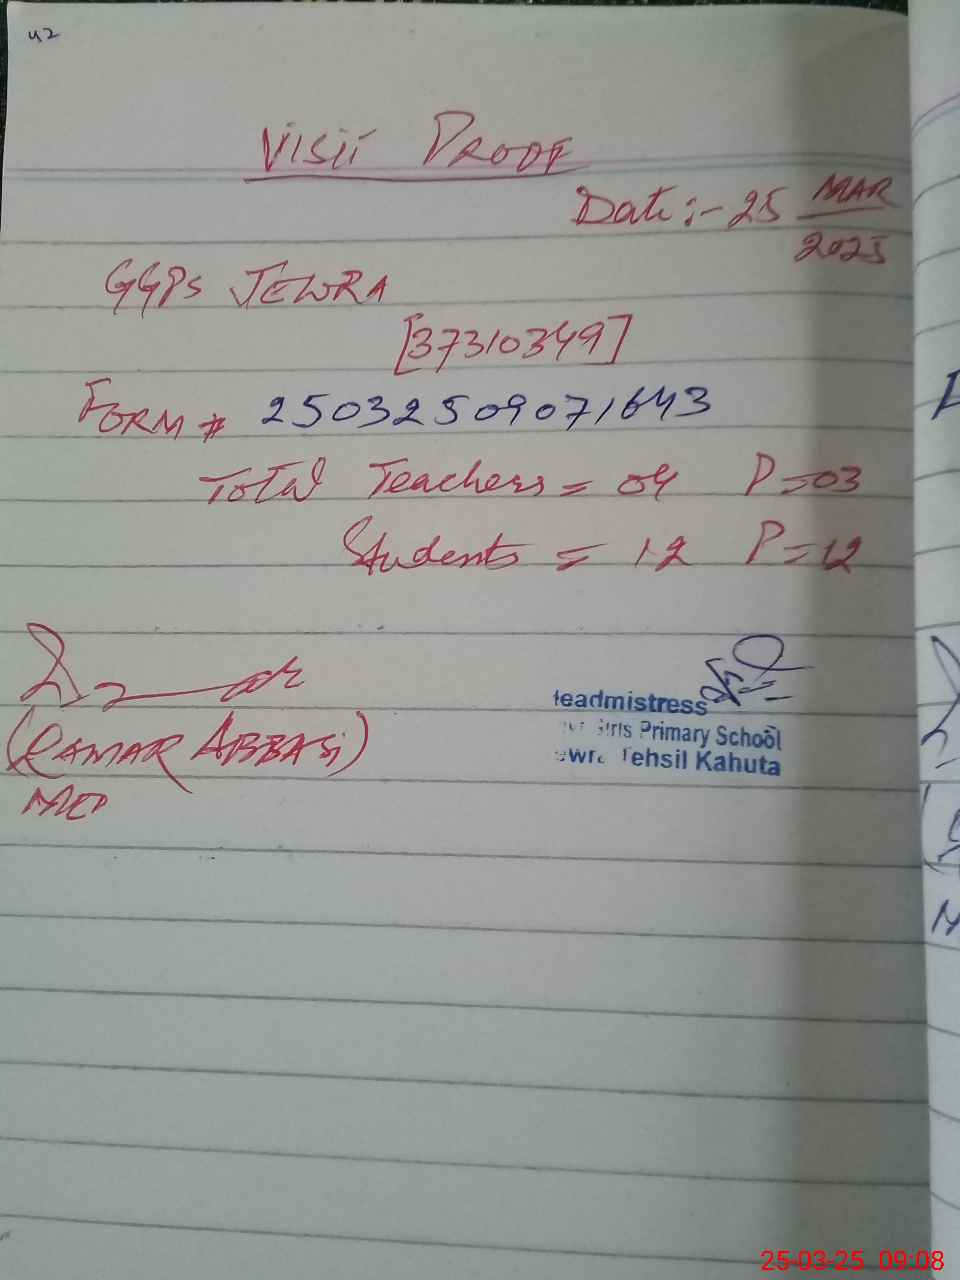 42
Visit Proof
Date:- 25 MAR
2025
GGPS JEWRA
[37310349]
Form # 25032509071643
Total Teachers = 04 P=03
Students = 12 P=12
(QAMAR ABBASi)
Headmistress
Girls Primary School
Tehsil Kahuta
25-03-25 09:08